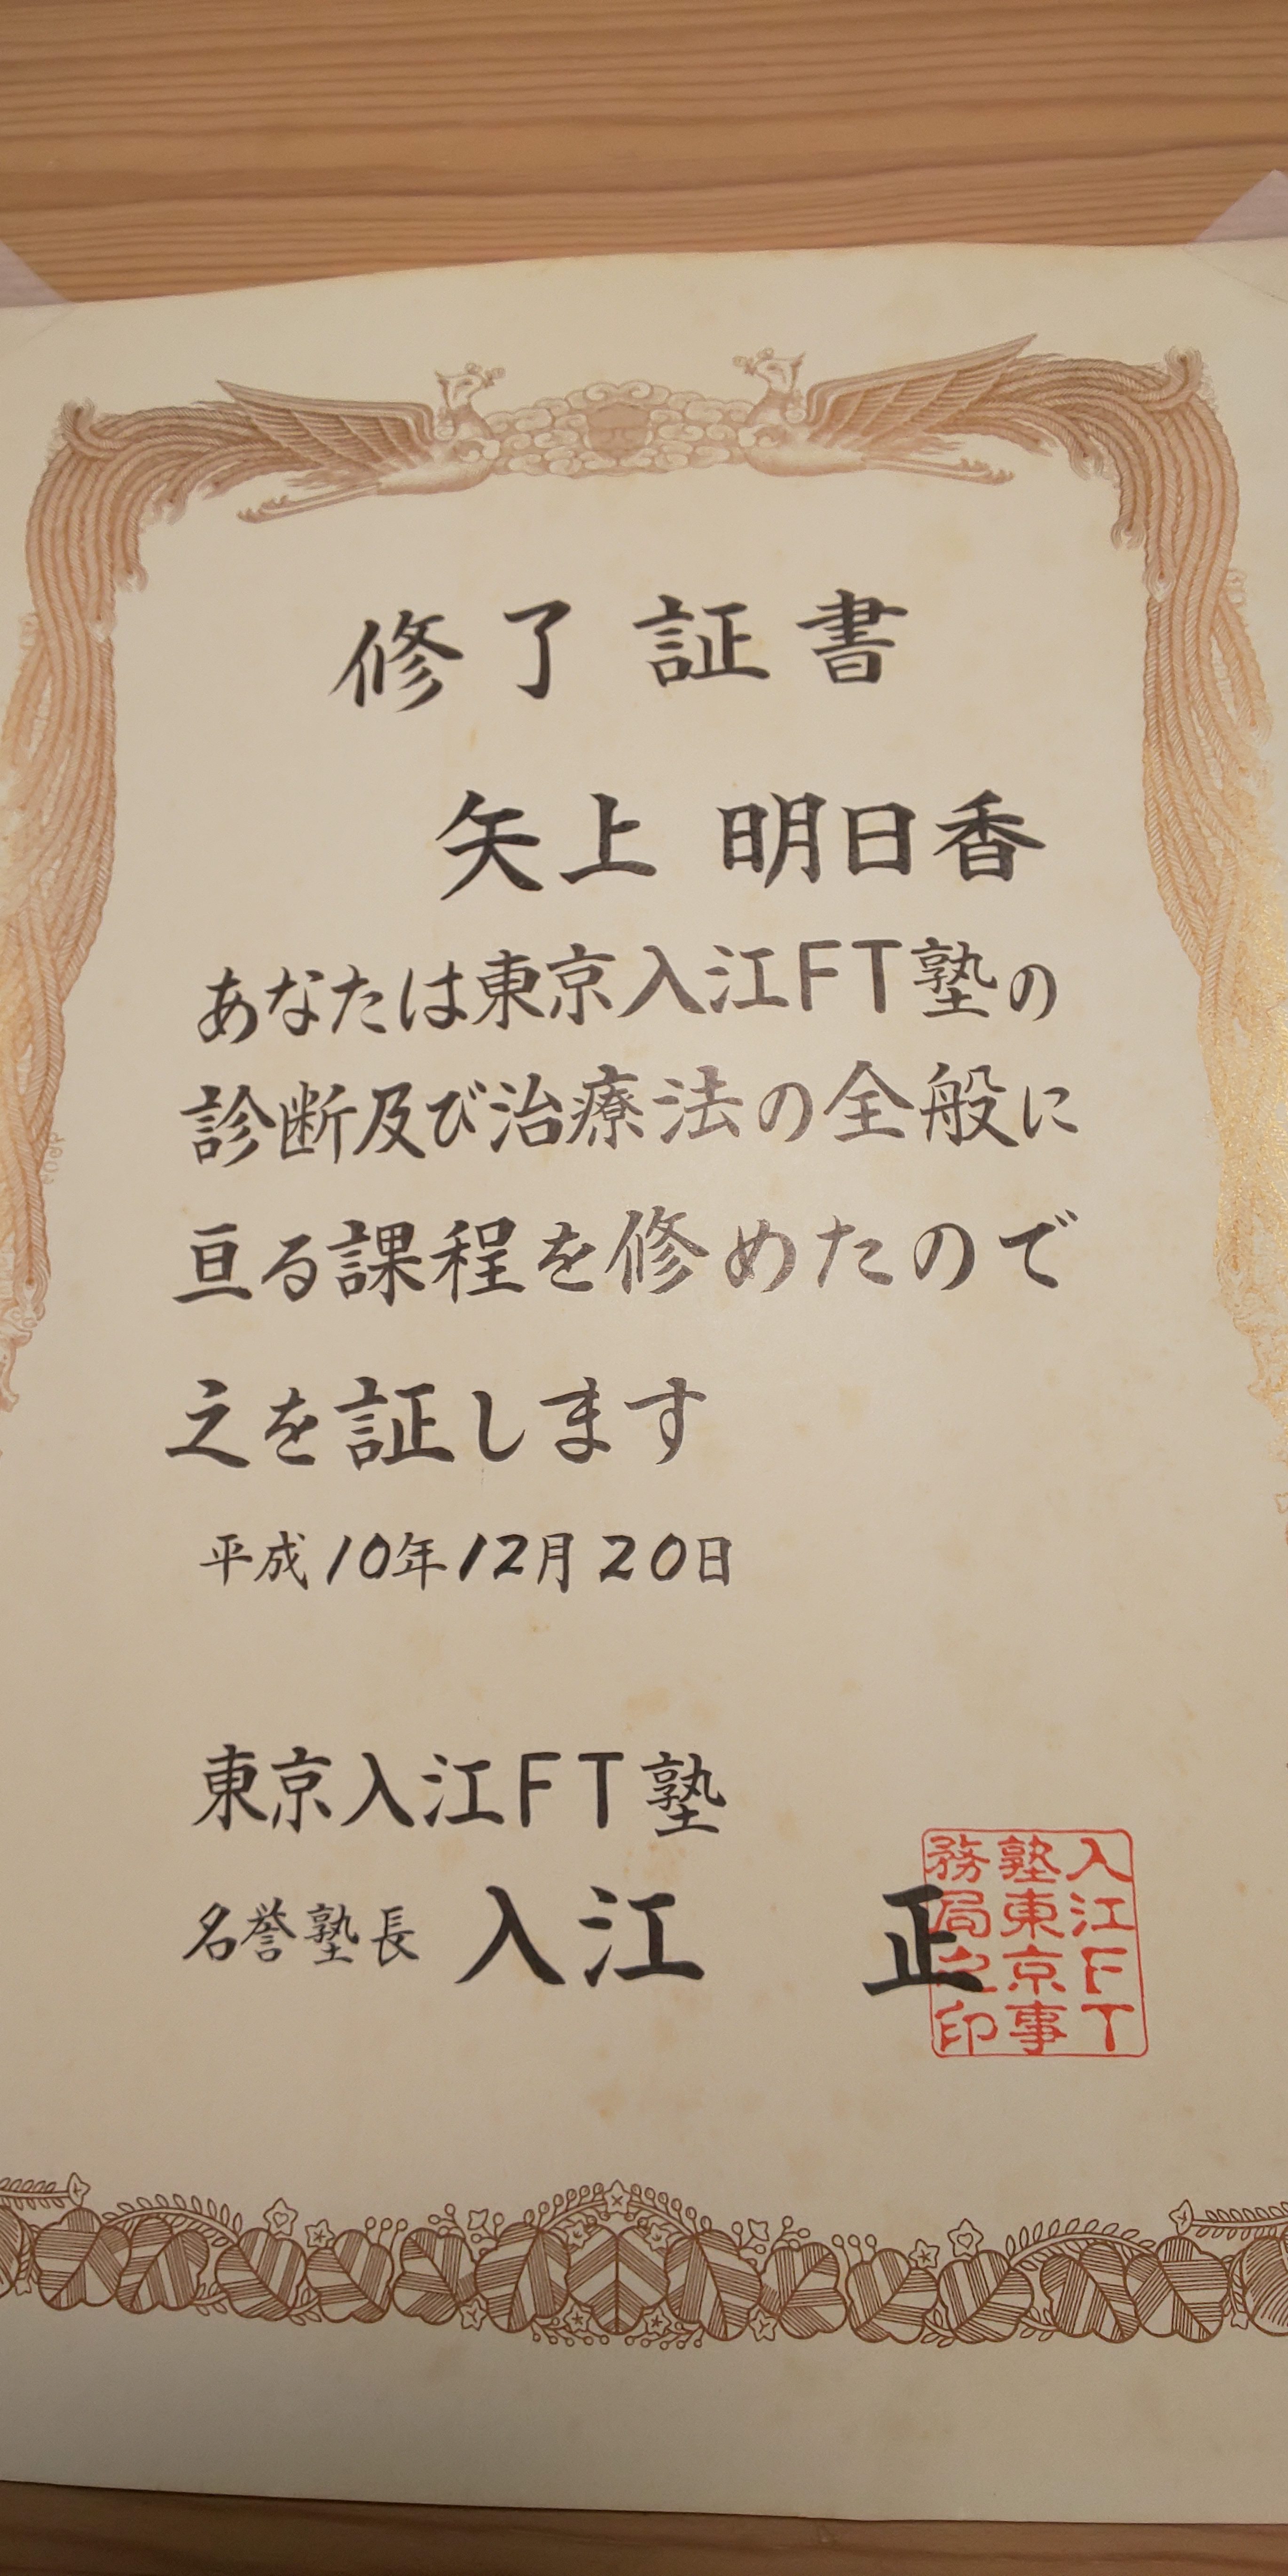 修了証書
矢上 明日香
あなたは東京入江FT塾の
診断及び治療法の全般に
亘る課程を修めたので
之を証します
平成10年12月20日
東京入江FT塾
名誉塾長 入江 正
入江FT
塾東京事
務局之印